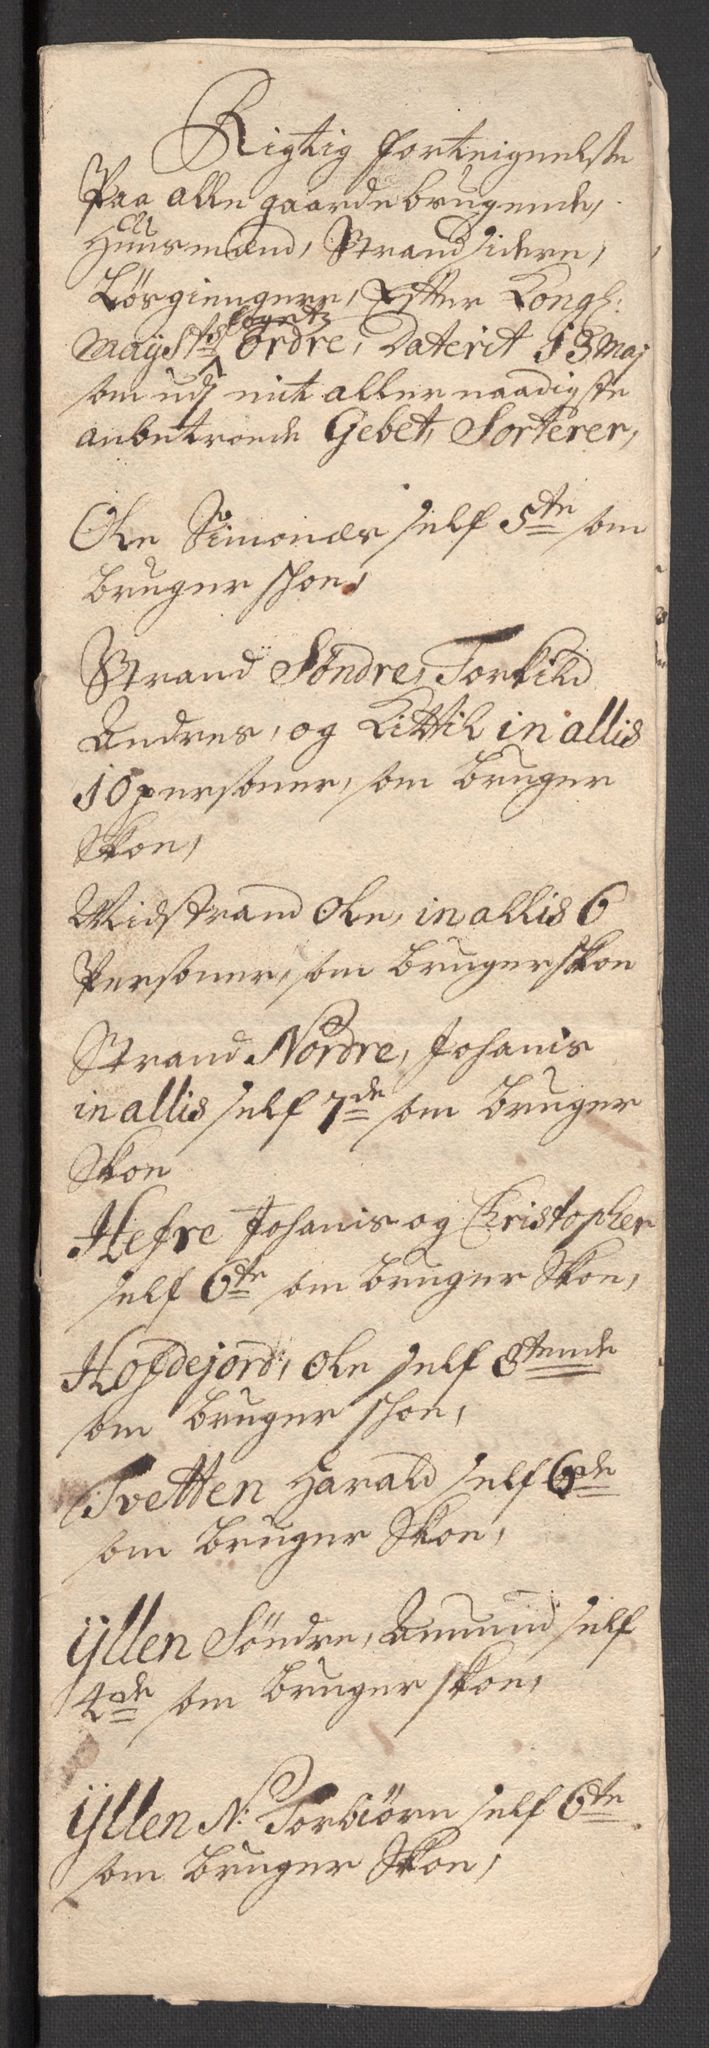 Rigtig forteignelse
Paa alle gaardebrugende,
Huusmænd, Strandsidere,
Løsgiengere, Efter Kongl:
Mayst:s fogets ordre, Daterit 13 Maj
som udj mit aller naadigste
anbetroede Gebet, Sorterer,
Ole Simonæs self 5te som
bruger schoe,
Strand Søndre, Torkild
Andres, og Kittil in allis
10 personer, som bruger
Skoe,
Midstrand Ole, in allis 6
Personer, som bruger skoe
Strand Nordre, Johanis
in allis self 7de som bruger
Skoe
Hefre Johanis og Christopher
self 6te som bruger Skoe,
Hofdejord, Ole self 8tende
som bruger schoe,
Tvetten Harald self 6de
som bruger Skoe,
ÿllen Søndre, Amund self
4de som bruger skoe,
ÿllen N: Torbiørn self 6te
som bruger Skoe,